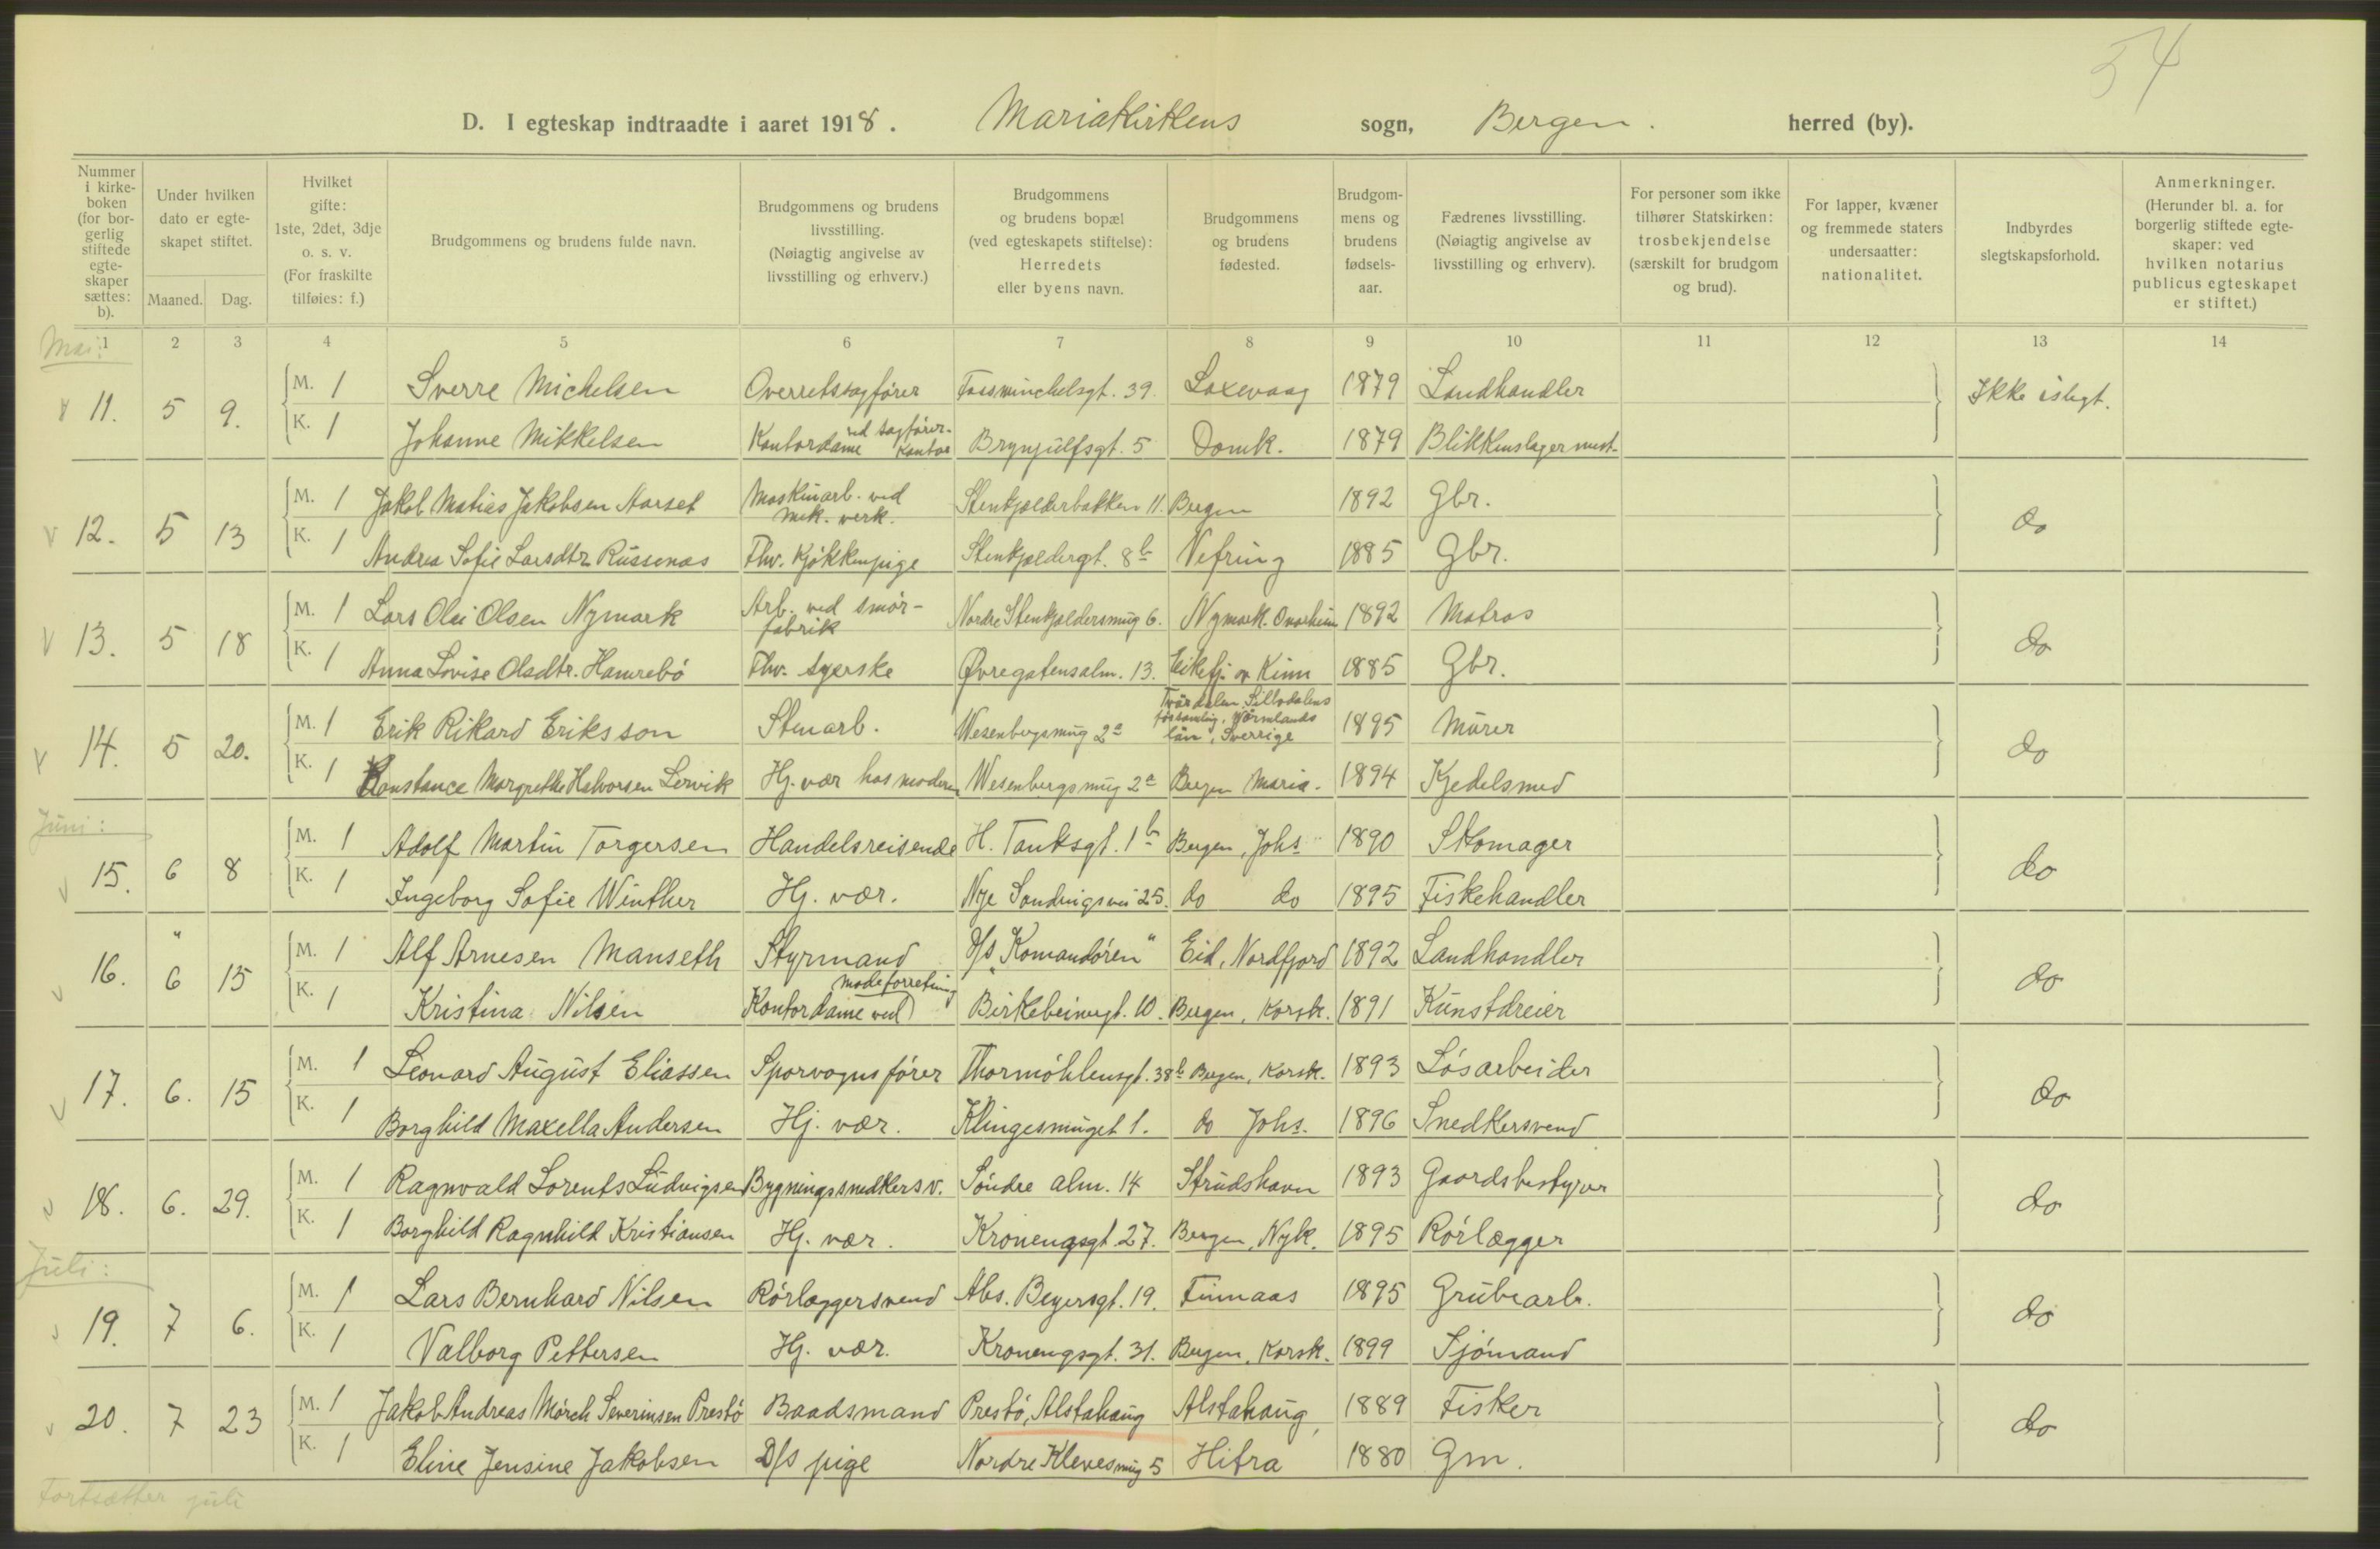 54
D. I egteskap indtraadte i aaret 1918. Mariakirkens sogn, Bergen. herred (by).
Nummer i kirke-boken (for bor-gerlig stiftede egte-skaper sættes: b).
Under hvilken dato er egte-skapet stiftet.
Maaned. Dag.
Hvilket gifte: 1ste, 2det, 3dje o. s. v. (For fraskilte tilføies: f.)
Brudgommens og brudens fulde navn.
Brudgommens og brudens livsstilling. (Nøiagtig angivelse av livsstilling og erhverv.)
Brudgommens og brudens bopæl (ved egteskapets stiftelse): Herredets eller byens navn.
Brudgommens og brudens fødested.
Brudgom-mens og brudens fødsels-aar.
Fædrenes livsstilling. (Nøiagtig angivelse av livsstilling og erhverv).
For personer som ikke tilhører Statskirken: trosbekjendelse (særskilt for brudgom og brud).
For lapper, kvæner og fremmede staters undersaatter: nationalitet.
Indbyrdes slegtskapsforhold.
Anmerkninger. (Herunder bl. a. for borgerlig stiftede egte-skaper: ved hvilken notarius publicus egteskapet er stiftet.)
1 2 3 4 5 6 7 8 9 10 11 12 13 14
Mai:
11. 5 9. M. 1 Sverre Michelsen Overretssagfører 39. Laxevaag 1879 Landhandler Ikke i slegt.
K. 1 Johanne Mikkelsen Kontordame ved sagfører-kontor Brynjulfsgt. 5 Domk. 1879 Blikkenslagermest.
12. 5 13 M. 1 Jakob Matias Jakobsen Aarset Maskinarb. ved mek. verk. Stenkjælderbakken 11. Bergen 1892 Gbr. do
K. 1 Andrea Sofie Larsdtr. Russenæs Thv. Kjøkkenpige Stenkjeldergt. 8b Vefring 1885 Gbr.
13. 5 18 M. 1 Lars Olai Olsen Nymark Arb. ved smør-fabrik Nordre Stenkjældersmug 6. Nymark. 1892 Matros do
K. 1 Anna Lovise Olsdtr. Hamrebø Thv. syerske Øvregatensalm. 13. Eikefj. Kinn 1885 Gbr.
14. 5 20. M. 1 Erik Rikard Eriksson Stenarb. Wesenbergsmug 2a Tvärdalen, Sillbodalens församling, Värmlands län, Sverige 1895 Murer do
K. 1 Konstance Margrethe Halvorsen Lervik Hj. vær hos moderen Wesenbergsmug 2a Bergen Maria. 1894 Kjedelsmed
Juni:
15. 6 8 M. 1 Adolf Martin Torgersen Handelsreisende H. Tanksgt. 1b Bergen, Johs. 1890 Skomager do
K. 1 Ingeborg Sofie Winther Hj. vær. Nye Sandviksvei 25. do do 1895 Fiskehandler
16. " 6 15 M. 1 Alf Arnesen Manseth Styrmand D/s „Komandøren" Eid, Nordfjord 1892 Landhandler do
K. 1 Kristina Nilsen Kontordame ved modeforretning Birkebeinergt. 10. Bergen, Korsk. 1891 Kunstdreier
17. 6. 15 M. 1 Leonard August Eliassen Sporvognsfører Thormøhlensgt. 38b Bergen, Korsk. 1893 Løsarbeider do
K. 1 Borghild Maxella Andersen Hj. vær. Klingesmuget 1. do Johs. 1896 Snedkersvend
18. 6. 29. M. 1 Ragnvald Lorents Ludvigsen Bygningssnedkersv. Søndre alm. 14 Strudshavn 1893 Gaardsbestyrer do
K. 1 Borghild Ragnhild Kristiansen Hj. vær. Kronengsgt. 27. Bergen, Nyk. 1895 Rørlægger
Juli:
19. 7 6. M. 1 Lars Bernhard Nilsen Rørlæggersvend Abs. Beyersgt. 19. Finnaas 1895 Grubearb. do
K. 1 Valborg Pettersen Hj. vær. Kronengsgt. 31. Bergen, Korsk. 1899 Sjømand
20. 7 23 M. 1 Jakob Andreas Mørch Severinsen Prestø Baadsmand Prestø, Alstahaug Alstahaug, 1889 Fisker do
K. 1 Eline Jensine Jakobsen D/s pige Nordre Klevesmug 5 Hitra 1880 Gm.
Fortsætter juli